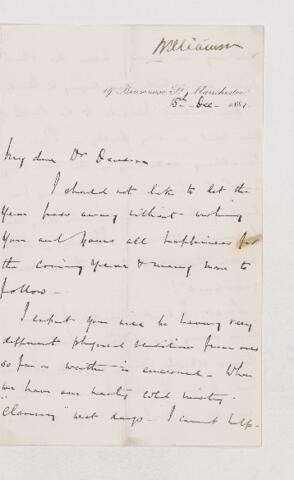 Williamson
Manchester
15th Dec - 1881
My dear Dr Dawson
I should not like to let the
year pass away without wishing
you and yours all happiness for
the coming year & many more to
follow -
I expect you will be having very
different physical conditions from ours
so far as weather is concerned - When
we have our nasty cold misty
"clammy" wet days - I cannot help -